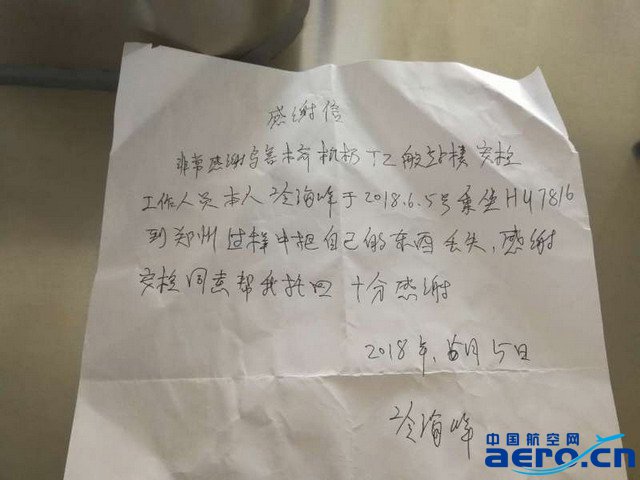 感谢信
非常感谢乌鲁木齐机场T2航站楼安检
工作人员本人冷海峰于2018.6.5号乘坐HU7816
到郑州过程中把自己的东西丢失,感谢
安检同志帮我找回 十分感谢
2018年.6月5日
冷海峰
中国航空网
aero.cn